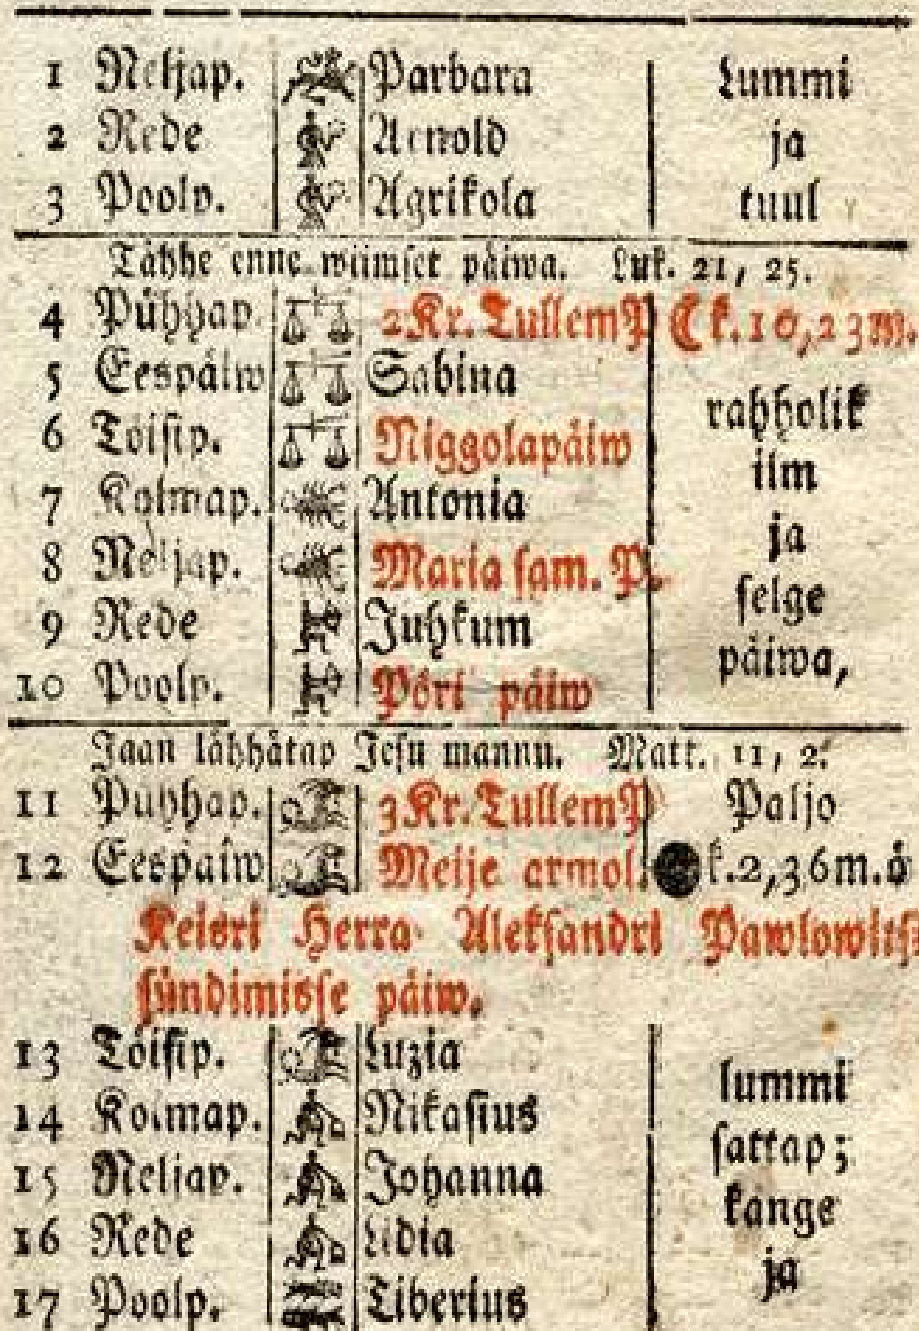 1 Neljap. Parbara Lummi
2 Rede Arnold ja
3 Poolp. Agrikola tuul
Tähhe enne wiimset päiwa. Luk. 21, 25.
4 Pühhap. 2 Kr. Tullem P k. 10, 23 m.
5 Eespäiw Sabina
6 Töisip. Niggolapäiw rahholik
7 Kolmap. Antonia ilm
8 Neljap. Maria sam. P. ja
9 Rede Juhkum selge
10 Poolp. Pöri päiw päiwa,
Jaan lähhätap Jesu mannu. Matt. 11, 2.
11 Pühhap. 3 Kr. Tullem P Paljo
12 Eespäiw Meije armol. k. 2, 36 m. ö
Keisri Herra Aleksandri Pawlowits
sündimisse päiw.
13 Töisip. Luzia
14 Kolmap. Nikasius lummi
15 Neljap. Johanna sattap;
16 Rede Lidia kange
17 Poolp. Tiberius ja